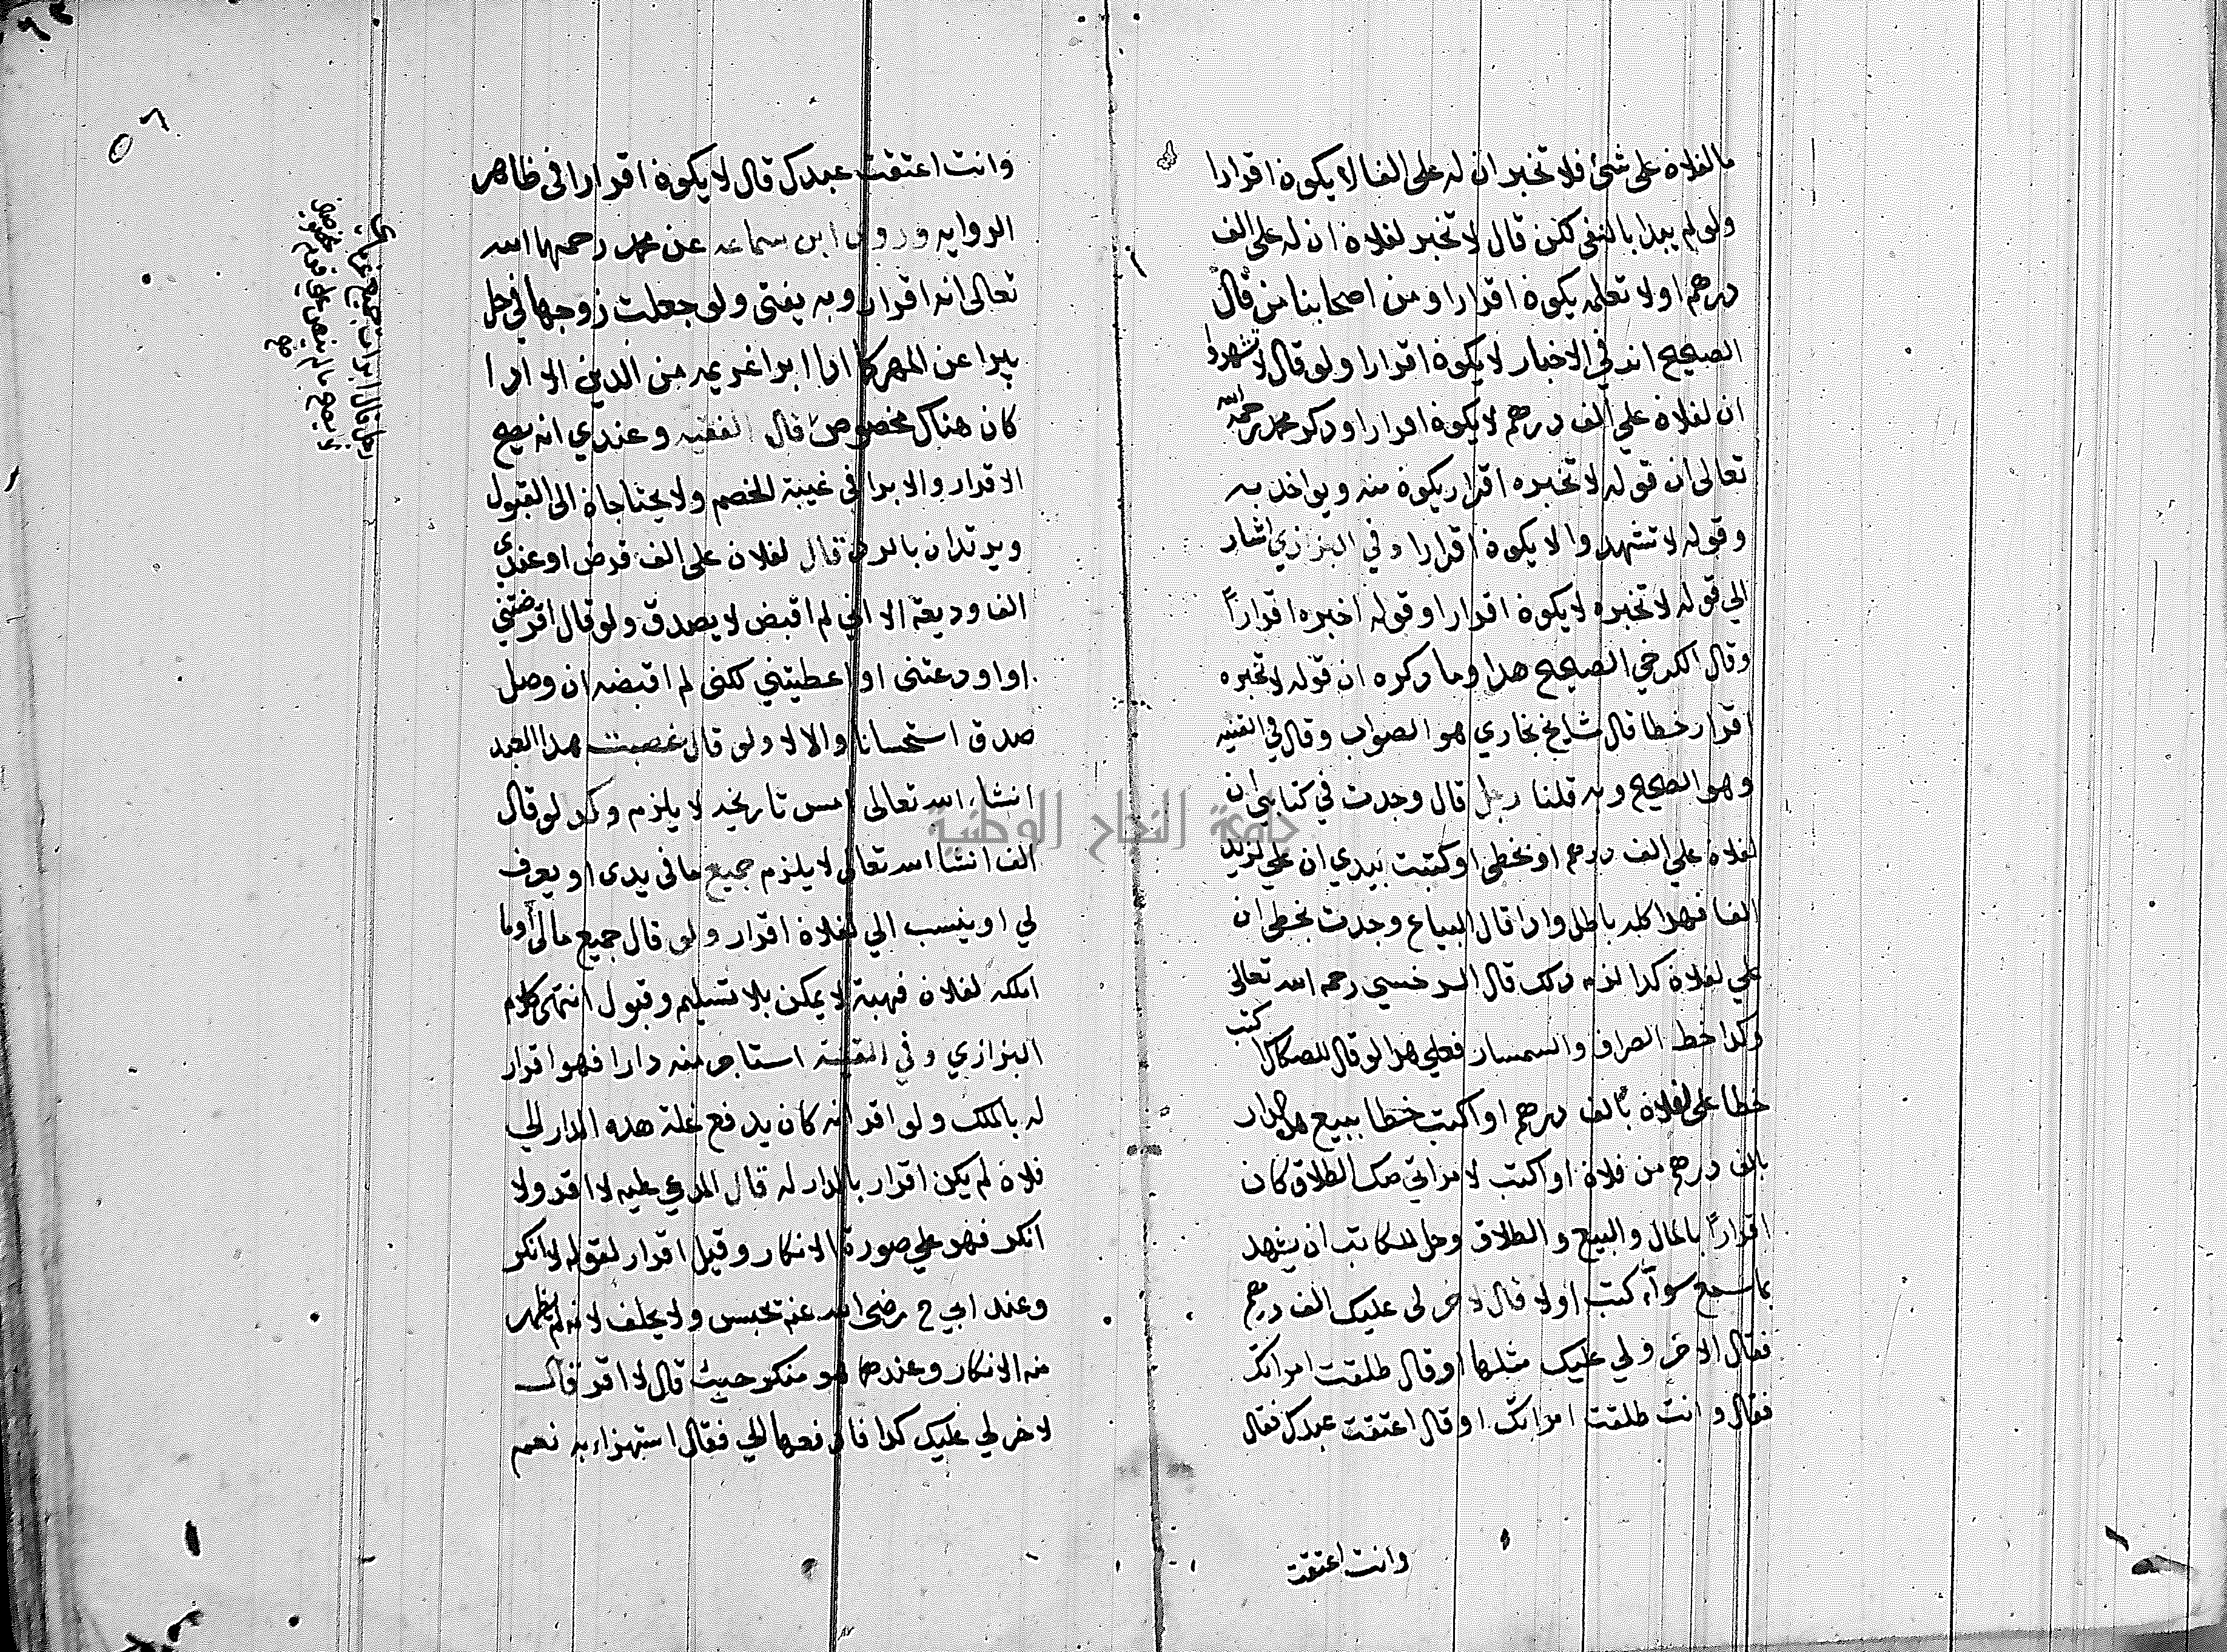 ما لفلان علي شئ فلا تخبر ان له علي الفا لا يكون اقرارا
ولو لم يبدا بالنفي لكن قال لا تخبر لفلان ان له علي الف
درهم او لا تعلمه يكون اقرارا ومن اصحابنا من قال
الصحيح انه في الاخبار لا يكون اقرارا ولو قال لا تشهدوا
ان لفلان علي الف درهم لا يكون اقرارا وذكر محمد رحمه الله
تعالى ان قوله لا تخبره اقرار يكون منه ويواخذ به
وقوله لا تشهدوا لا يكون اقرارا وفي البزازي اشار
الي قوله لا تخبره لا يكون اقرارا وقوله اخبره اقراراً
وقال الكرخي الصحيح هذا وما ذكره ان قوله لا تخبره
اقرار خطا قال مشايخ بخاري هو الصواب وقال في القنيه
وهو الصحيح وبه قلنا رجل قال وجدت في كتابي ان
لفلان علي الف درهم او بخطي او كتبت بيدي ان علي لزيد
الفا فهذا كله باطل واذا قال البياع وجدت بخطي ان
علي لفلان كذا لزم ذلك قال السرخسي رحمه الله تعالى
وكذا خط الصراف والسمسار فعلي هذا لو قال للصكاك اكتب
خطا علي لفلان بالف درهم او اكتب خطا ببيع هذا الدار
بالف درهم من فلان او اكتب لامراتي صك الطلاق كان
اقراراً بالمال والبيع والطلاق وحل للكاتب ان يشهد
بما سمع سوآء كتب اولا قال لاخر لي عليك الف درهم
فقال الاخر ولي عليك مثلها او قال طلقت امراتك
فقال وانت طلقت امراتك او قال اعتقت عبدك فقال
وانت اعتقت
وانت اعتقت عبدك قال لا يكون اقرارا في ظاهر
الروايه وروي ابن سماعه عن محمد رحمهما الله
تعالى انه اقرار وبه يفتى ولو جعلت زوجها في حل
يبرا عن المهر كما اذا ابرا غريمه من الدين الا اذا
كان هناك مخصوص قال الفقيه وعندي انه يصح
الاقرار والابرا في غيبة الخصم ولا يحتاجان الى القبول
ويرتدان بالرد قال لفلان علي الف قرض او عندي
الف وديعة الا اني لم اقبض لا يصدق ولو قال اقرضتني
او اودعتني او اعطيتني لكني لم اقبضه ان وصل
صدق استحسانا والا لا ولو قال غصبت هذا العبد
انشاء الله تعالى امس تاريخه لا يلزم وكذا لو قال
الف انشا الله تعالى لا يلزم جميع ما في يدى او يعرف
لي او ينسب الي لفلان اقرار ولو قال جميع مالى او ما
املكه لفلان فهبة لا يمكن بلا تسليم وقبول انتهى كلام
البزازي وفي القنية استاجر منه دارا فهو اقرار
له بالملك ولو اقر انه كان يدفع غلة هذه الدار الي
فلان لم يكن اقرار بالدار له قال المدعي عليه لا اقر ولا
انكر فهو علي صورة الانكار وقيل اقرار لقوله لا انكر
وعند ابي ح رضى الله عنه يحبس ولا يحلف لانه لم يظهر
منه الانكار وعندهما هو منكر حيث قال لا اقر قال
لاخر لي عليك كذا فادفعها الي فقال استهزاء به نعم